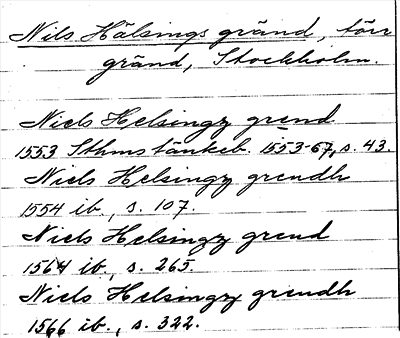 Nils Hälsings gränd, törr
gränd, Stockholm.
Niels Helsingz grend
1553 Sthms tänkeb. 1553-67, s. 43.
Niels Helsingz grendh
1554 ib., s. 107.
Niels Helsingz grend
1564 ib., s. 265.
Niels Helsingz grendh
1566 ib., s. 322.